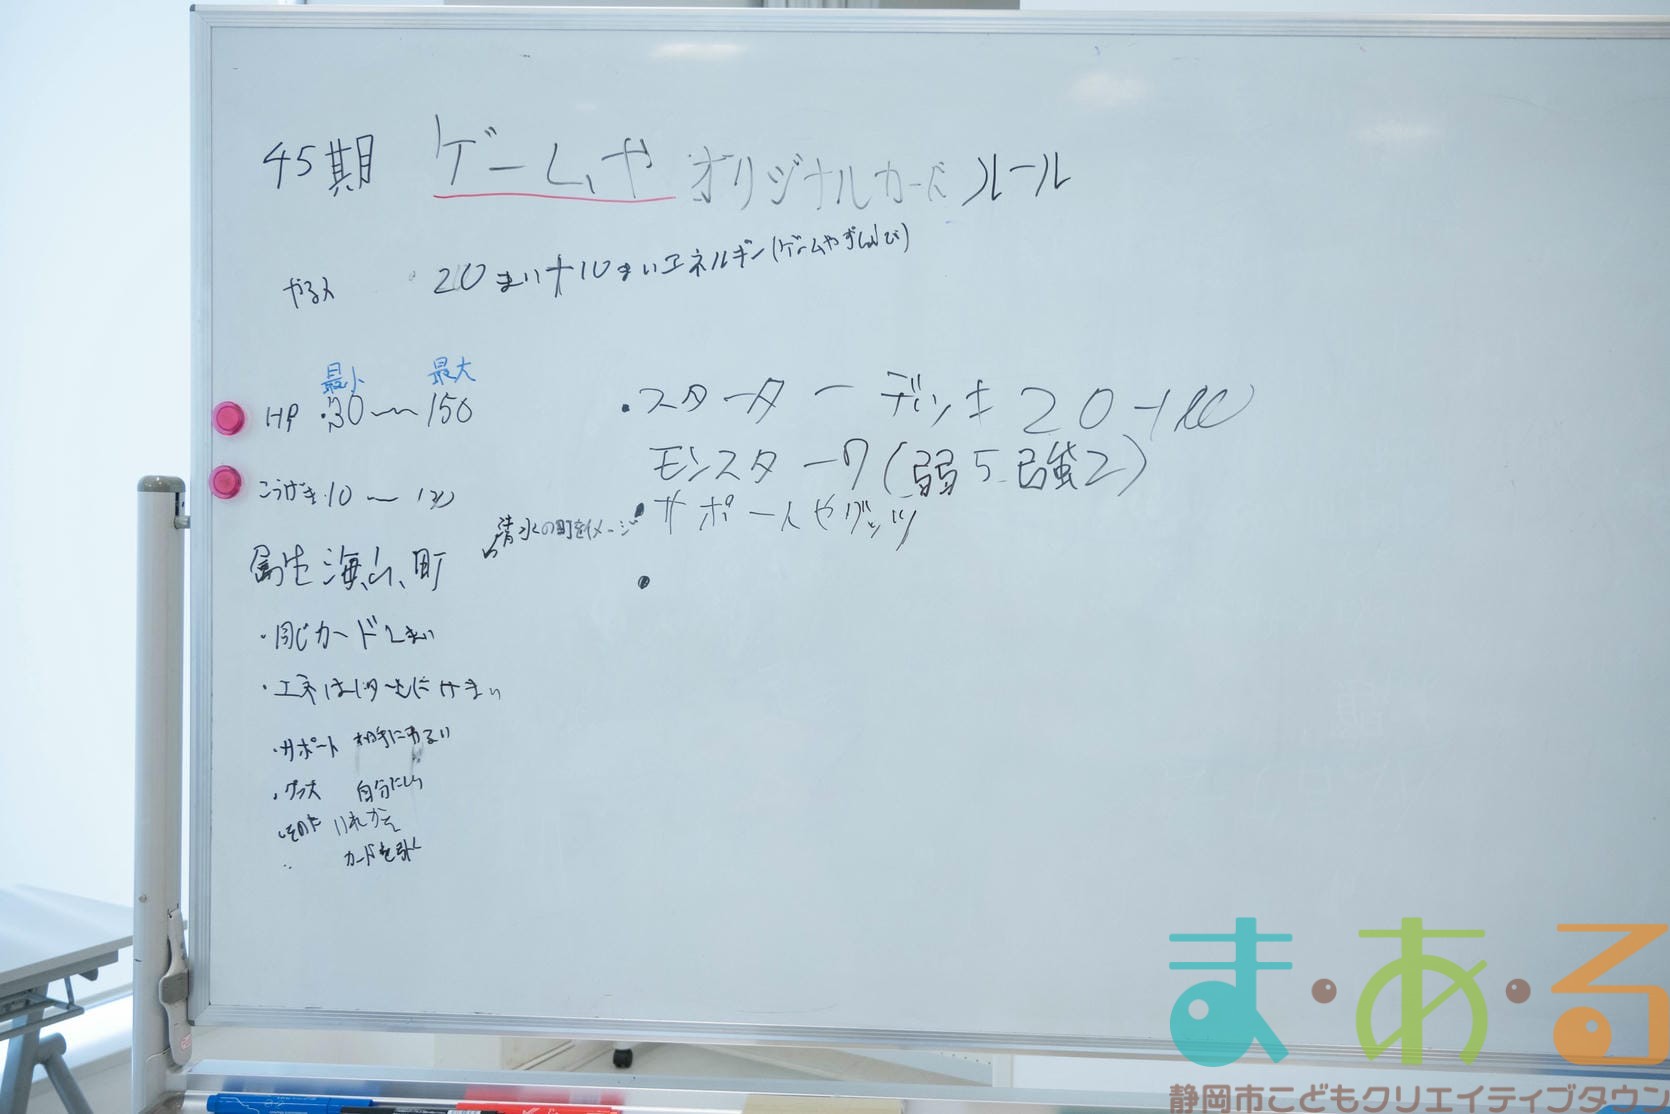 45期 ゲームや オリジナルカード ルール
やる人 20まい+10まいエネルギー(ゲームやずし
最小 最大
HP 30〜150
こうげき 10〜
属性 海、山、町
清水の町をイメージ
・同じカード2まい
・エネは
・サポート 相手にわるい
・グッズ 自分にいい
・その他 いれかえ
カードを引く
・スターターデッキ 20+10
モンスター7(弱5 強2)
・サポートやグッズ
・
ま・あ・る
静岡市こどもクリエイティブタウン